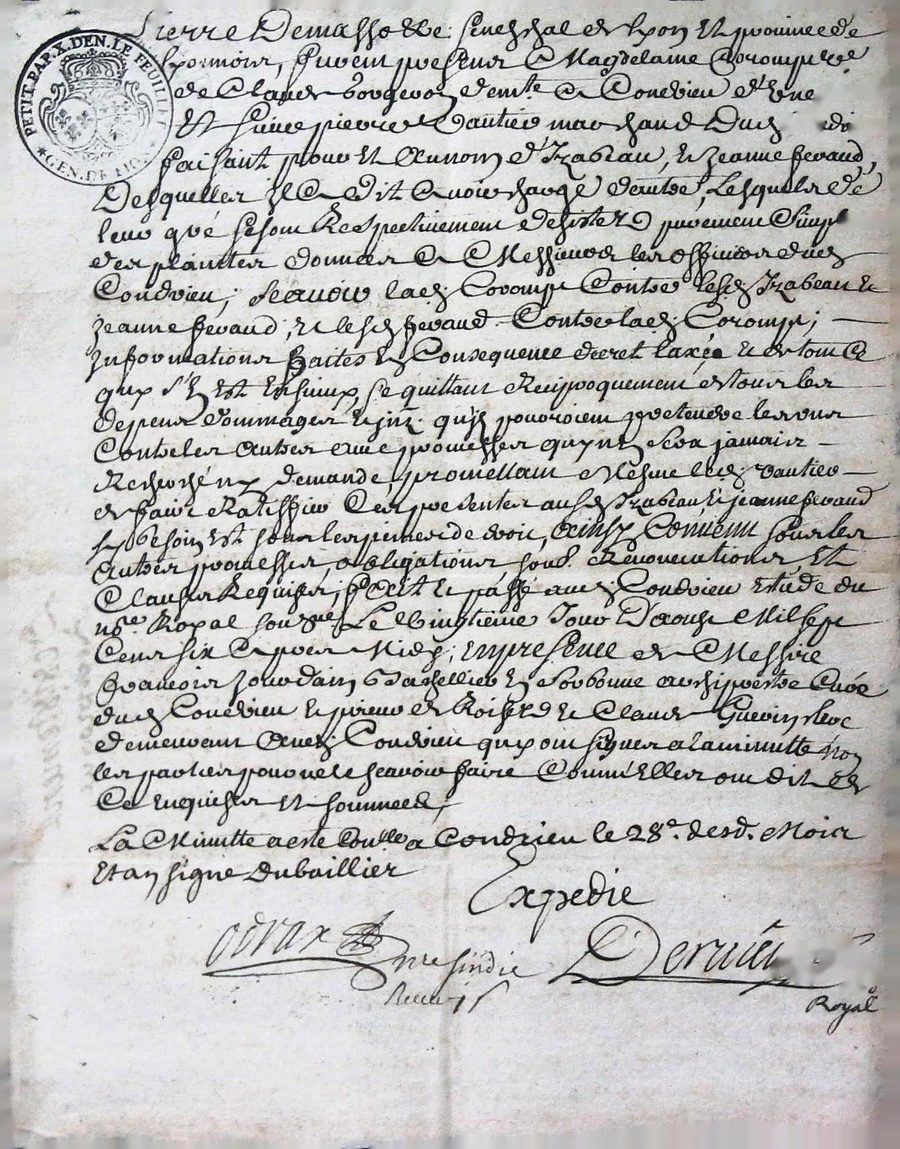 PETIT. PAP. X. DEN. LE FEUILLET
GEN. DE LIO.
Pierre Demassolle Seneschal de Lyon Et province de
Lyonnois, furent presens Magdelaine Coromp ve
de Claude demte a Condrieu d'Une
Et sieur pierre Vautier marchand Dud
faisant pour Et Au nom d'Izabeau, & Jeanne fevaud,
Desquelles Il A dit Avoir charge d'autre, Lesquels de
leur gré se sont Respectivement desistez purement Simpl
des plaintes données A Messieurs les officiers dud
Condrieu; scavoir lad Coromp Contre lesd Izabeau &
Jeanne fevaud, & lesd fevaud Contre lad Coromp;
Informations faites En Consequence decret laxée & de tout Ce
quy s'En Est Ensuivy, se quittant Reciproquement de tous les
depens dommages & int. qu'ils pouvoient pretendre les uns
Contre les Autres avec promesses quy n'En sera jamais
Recherché ny demandé, promettant Mesme led Vautier
de faire Ratiffier Ces presentes ausd Izabeau & Jeanne fevaud
sy besoin Est sous les peines de droit, Ainsy Convenu sous les
Autres promesses, obligations soub. Renonciations, Et
Clauses Requises, fait & passé aud Condrieu Estude du
nore Royal sousné Le Vingtieme Jour D'aoust Mil sept
Cens six Apres Midy; En presence de Messire
francois Jourdain Bachellier En Sorbonne archiprestre Curé
dud Condrieu & prieur de & Claude Guerin clerc
demeurant Aud Condrieu quy ont signés a la minutte non
les parties pour ne le scavoir faire Comm'Elles ont dit de
Ce Enquises Et sommées,
La Minutte a esté Conlle a Condrieu le 28e. desd. Mois
Et an signé Duballier
Expedié
nre sindic
Royal